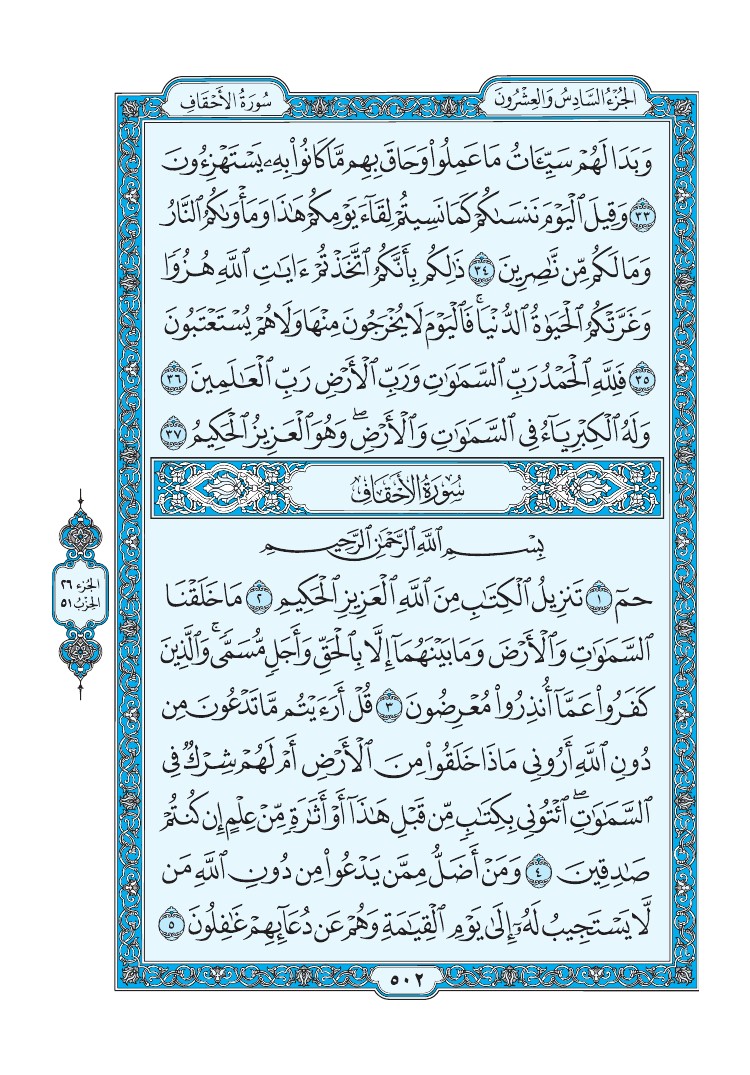 الجُزْءُ السَّادِسُ وَالعِشْرُونَ
سُورَةُ الأَحْقَافِ
وَبَدَا لَهُمْ سَيِّـَٔاتُ مَا عَمِلُوا۟ وَحَاقَ بِهِم مَّا كَانُوا۟ بِهِۦ يَسْتَهْزِءُونَ
٣٣ وَقِيلَ ٱلْيَوْمَ نَنسَىٰكُمْ كَمَا نَسِيتُمْ لِقَآءَ يَوْمِكُمْ هَـٰذَا وَمَأْوَىٰكُمُ ٱلنَّارُ
وَمَا لَكُم مِّن نَّـٰصِرِينَ ٣٤ ذَٰلِكُم بِأَنَّكُمُ ٱتَّخَذْتُمْ ءَايَـٰتِ ٱللَّهِ هُزُوًا
وَغَرَّتْكُمُ ٱلْحَيَوٰةُ ٱلدُّنْيَا ۚ فَٱلْيَوْمَ لَا يُخْرَجُونَ مِنْهَا وَلَا هُمْ يُسْتَعْتَبُونَ
٣٥ فَلِلَّهِ ٱلْحَمْدُ رَبِّ ٱلسَّمَـٰوَٰتِ وَرَبِّ ٱلْأَرْضِ رَبِّ ٱلْعَـٰلَمِينَ ٣٦
وَلَهُ ٱلْكِبْرِيَآءُ فِى ٱلسَّمَـٰوَٰتِ وَٱلْأَرْضِ ۖ وَهُوَ ٱلْعَزِيزُ ٱلْحَكِيمُ ٣٧
سُورَةُ الأَحْقَافِ
بِسْمِ ٱللَّهِ ٱلرَّحْمَـٰنِ ٱلرَّحِيمِ
حمٓ ١ تَنزِيلُ ٱلْكِتَـٰبِ مِنَ ٱللَّهِ ٱلْعَزِيزِ ٱلْحَكِيمِ ٢ مَا خَلَقْنَا
ٱلسَّمَـٰوَٰتِ وَٱلْأَرْضَ وَمَا بَيْنَهُمَآ إِلَّا بِٱلْحَقِّ وَأَجَلٍ مُّسَمًّى ۚ وَٱلَّذِينَ
كَفَرُوا۟ عَمَّآ أُنذِرُوا۟ مُعْرِضُونَ ٣ قُلْ أَرَءَيْتُم مَّا تَدْعُونَ مِن
دُونِ ٱللَّهِ أَرُونِى مَاذَا خَلَقُوا۟ مِنَ ٱلْأَرْضِ أَمْ لَهُمْ شِرْكٌ فِى
ٱلسَّمَـٰوَٰتِ ۖ ٱئْتُونِى بِكِتَـٰبٍ مِّن قَبْلِ هَـٰذَآ أَوْ أَثَـٰرَةٍ مِّنْ عِلْمٍ إِن كُنتُمْ
صَـٰدِقِينَ ٤ وَمَنْ أَضَلُّ مِمَّن يَدْعُوا۟ مِن دُونِ ٱللَّهِ مَن
لَّا يَسْتَجِيبُ لَهُۥٓ إِلَىٰ يَوْمِ ٱلْقِيَـٰمَةِ وَهُمْ عَن دُعَآئِهِمْ غَـٰفِلُونَ ٥
الجُزء ٢٦
الحِزبُ ٥١
٥٠٢